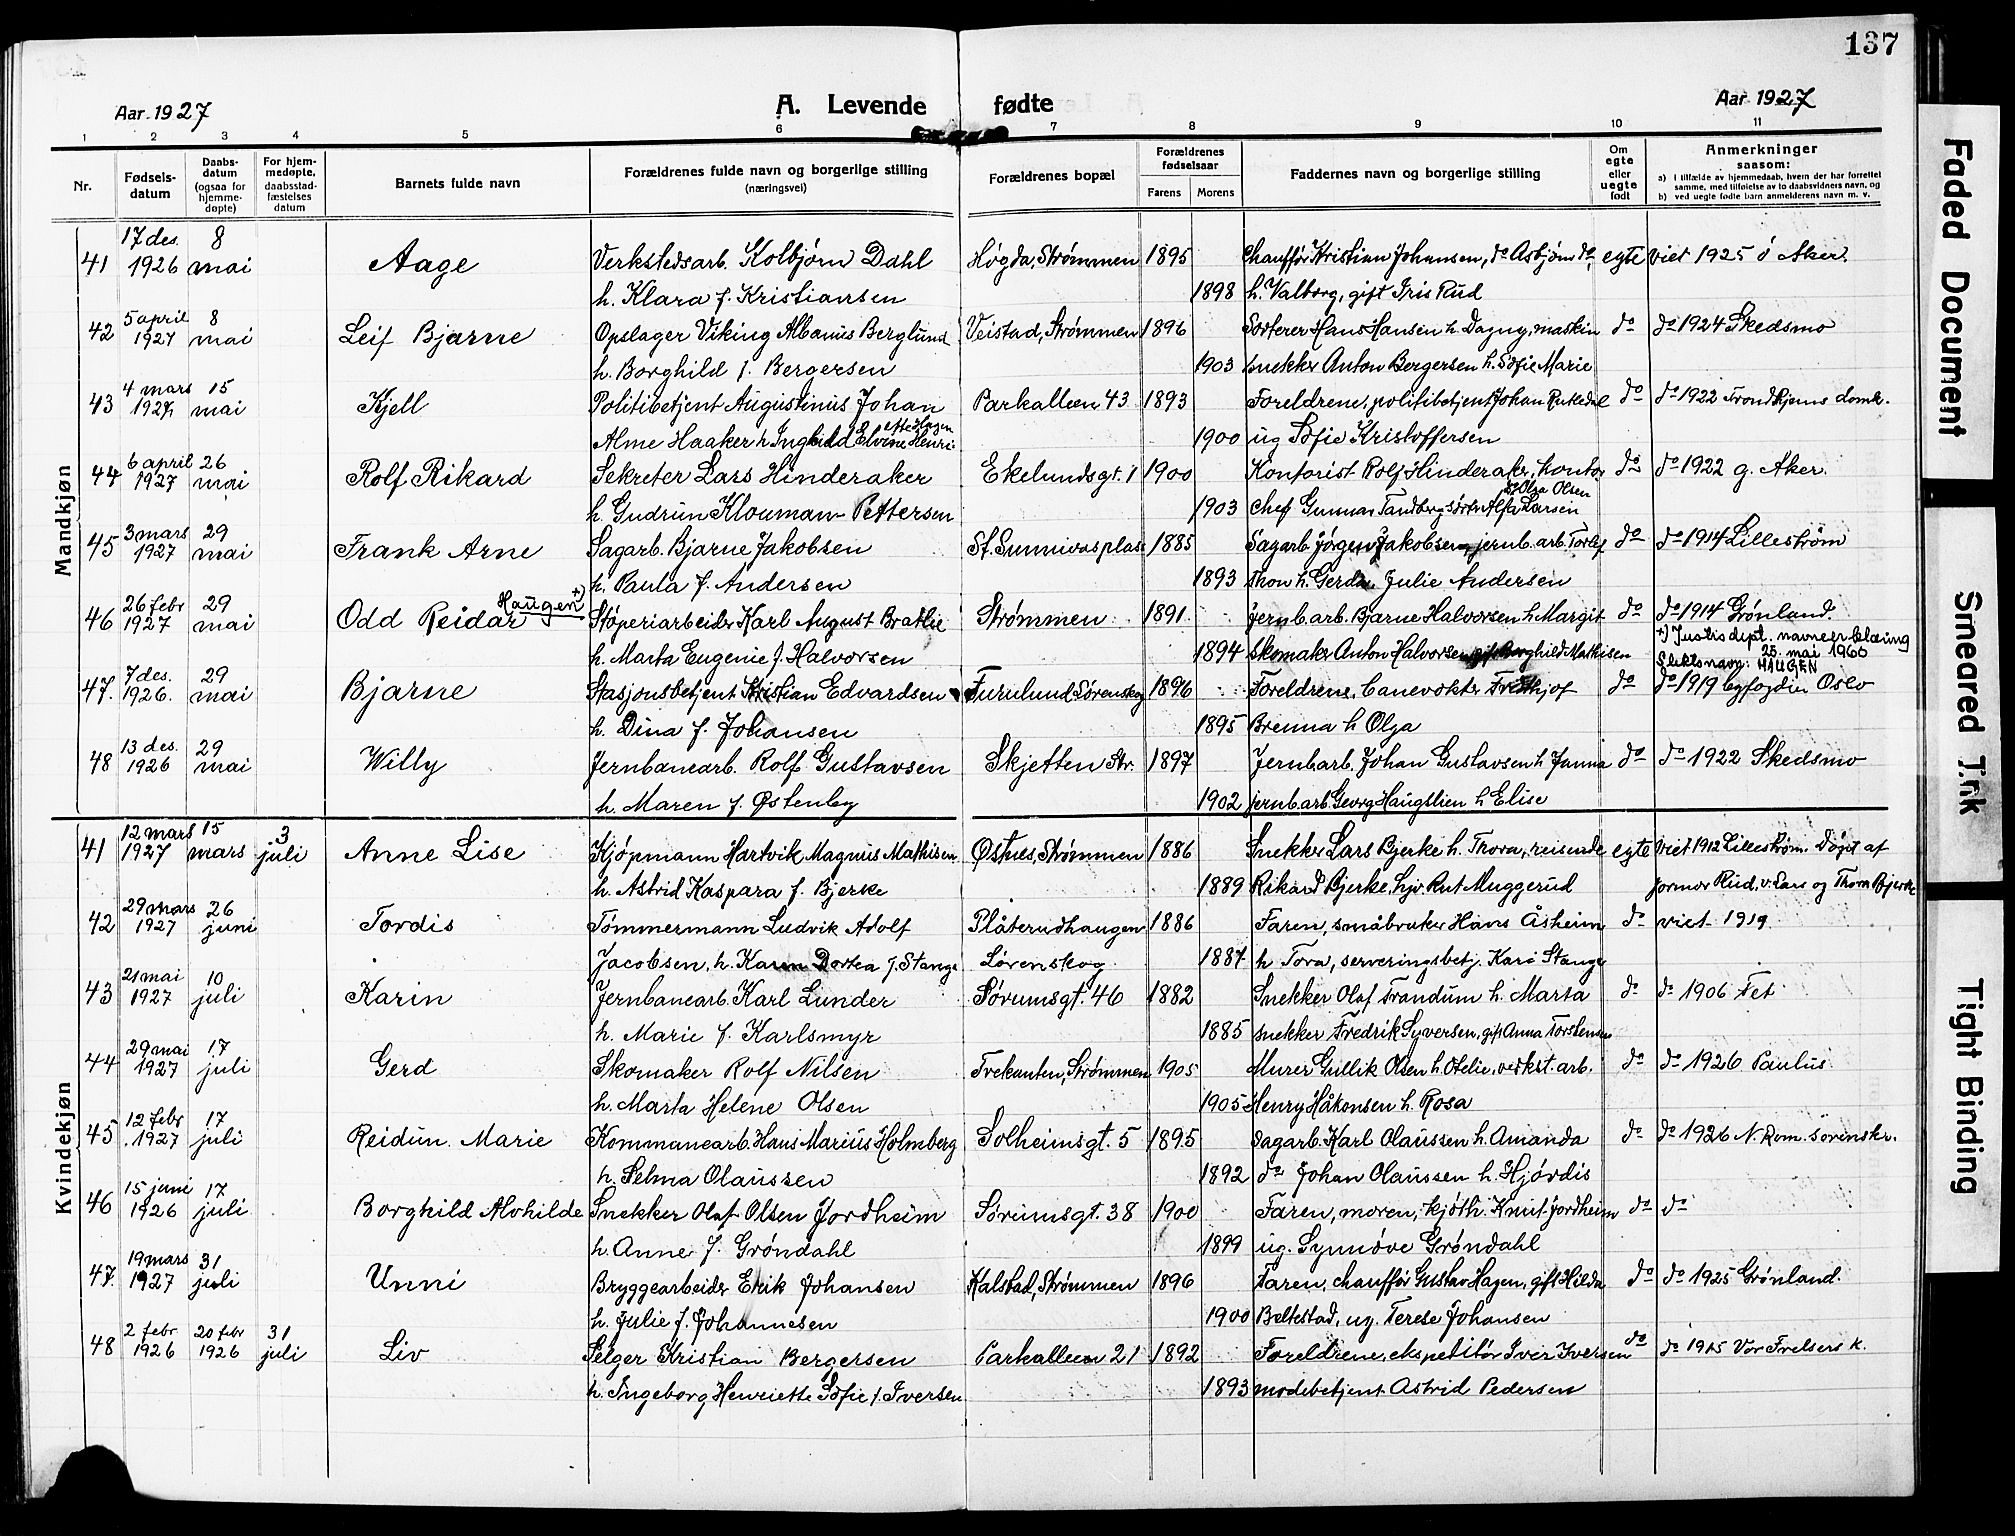 137
Aar 1927 A. Levende fødte Aar 1927
1 2 3 4 5 6 7 8 9 10 11
Nr. Fødselsdatum Daabsdatum (ogsaa for hjemmedøpte) For hjemmedøpte, daabsstadfæstelses datum Barnets fulde navn Forældrenes fulde navn og borgerlige stilling (næringsvei) Forældrenes bopæl Forældrenes fødselsaar Farens Morens Faddernes navn og borgerlige stilling Om egte eller uegte født Anmerkninger saasom:
a) I tilfælde av hjemmedaab, hvem der har forrettet samme, med tilføielse av to daabsvidners navn, og
b) ved uegte fødte barn anmelderens navn m. v.
Mandkjøn
41 17 des. 1926 8 mai Aage Verkstedsarb. Kolbjørn Dahl Høgda, Strømmen 1895 Chauffør Kristian Johansen, do Asbjørn do, egte viet 1925 ö Aker.
h. Klara f. Kristiansen 1898 h. Valborg, gift Iris Rud
42 5 april 1927 8 mai Leif Bjarne Opslager Viking Albanus Berglund Veistad, Strømmen 1896 Sorterer Hans Hansen h Dagny, maskin do do 1924 Skedsmo
h. Borghild f. Bergersen 1903 snekker Anton Bergersen h. Sofie Marie
43 4 mars 1927 15 mai Kjell Politibetjent Augustinus Johan Parkalleen 43 1893 Foreldrene, politibetjent Johan do do 1922 Trondhjems domk.
Alme Haaker h Inghild Elvine Henri- ette Hagen 1900 ug Sofie Kristoffersen
44 6 april 1927 26 mai Rolf Rikard Sekretær Lars Hinderaker Ekelundsgt. 1 1900 Kontorist Rolf Hinderaker, kontor do do 1922 g. Aker.
h. Gudrun Klouman Pettersen 1903 chef Gunnar Tandberg Alfa Larsen Olga Olsen
45 3 mars 1927 29 mai Frank Arne Sagarb. Bjarne Jakobsen St. Sunnivasplass 1885 Sagarb. Jørgen Jakobsen, jernb. arb. Torlef do do 1914 Lillestrøm
h. Paula f. Andersen 1893 Thon h. Gerda, Julie Andersen
46 26 febr 1927 29 mai Odd Reidar Haugen +) Støperiarbeider Karl August Bratlie Strømmen 1891 Jernb. arb. Bjarne Halvorsen h Margit do do 1914 Grønland.
h. Marta Eugenie f. Halvorsen 1894 skomaker Anton Halvorsen, gift Borghild Mathisen +) Justisdept. navneerklæring 25. mai 1960 Slektsnavn: HAUGEN
47. 7 des. 1926. 29 mai Bjarne Stasjonsbetjent Kristian Edvardsen Furulund Lørenskog 1896 Foreldrene, banevokter Fridtjof do do 1919 byfogden Oslo
h. Dina f. Johansen 1895 Brenna h Olga
48 13 des. 1926 29 mai Willy Jernbanearb. Rolf Gustavsen Skjetten Str. 1897 Jernb. arb. Johan Gustavsen h Janna do do 1922 Skedsmo
h. Maren f. Østenby 1902 jernb. arb Georg Haugslien h Elise
Kvindekjøn
41 12 mars 1927 15 mars 3 juli Anne Lise Kjøpmann Hartvik Magnus Mathisen Østnes, Strømmen 1886 Snekker Lars Bjerke h. Thora, reisende egte viet 1912 Lillestrøm. Døpt af
h. Astrid Kaspara f. Bjerke 1889 Rikard Bjerke, hjv. Rut Muggerud jormor Rud, v. Lars og Thora Bjerke
42 29 mars 1927 26 juni Tordis Tømmermann Ludvik Adolf Plåterudhaugen 1886 Faren, småbruker Hans Åsheim do viet 1919
Jacobsen, h. Karen Dortea f. Stange Lørenskog 1887 h Tora, serveringsbetj. Kari Stange
43 21 mai 1927 10 juli Karin Jernbanearb. Karl Lunder Sørumsgt. 46 1882 Snekker Olaf Trandum h. Marta do do 1906 Fet
h. Marie f. Karlsmyr 1885 snekker Fredrik Syversen, gift Anna Torstensen
44 29 mai 1927 17 juli Gerd Skomaker Rolf Nilsen Trekanten, Strømmen 1905 Murer Gullik Olsen h. Otelie, verkst. arb. do do 1926 Paulus
h. Marta Helene Olsen 1905 Henry Håkonsen h. Rosa
45 12 febr 1927 17 juli Reidun Marie Kommunearb. Hans Marius Holmberg Solheimsgt. 5 1895 Sagarb. Karl Olaussen h. Amanda do do 1926 N. Rom. sørenskr.
h. Selma Olaussen 1892 do Johan Olaussen h. Hjørdis
46 15 juni 1926 17 juli Borghild Alvhilde Snekker Olaf Olsen Jordheim Sørumsgt. 38 1900 Faren, moren, kjøth. Knut Jordheim do do
h. Anne f. Grøndahl 1899 ug. Synnøve Grøndahl
47 19 mars 1927 31 juli Unni Bryggearbeider Erik Johansen Kalstad, Strømmen 1896 Faren, chauffør Gustav Hagen, gift Hilda do do 1925 Grønland.
h. Julie f. Johannesen 1900 Beltestad, ug. Terese Johansen
48 2 febr 1926 20 febr 1926 31 juli Liv Selger Kristian Bergersen Parkalleen 21 1892 Foreldrene, ekspeditør Iver Iversen do do 1915 Vår Frelsers k.
h. Ingeborg Henriette Sofie f. Iversen 1893 modebetjent Astrid Pedersen
Faded Document
Smeared Ink
Tight Binding